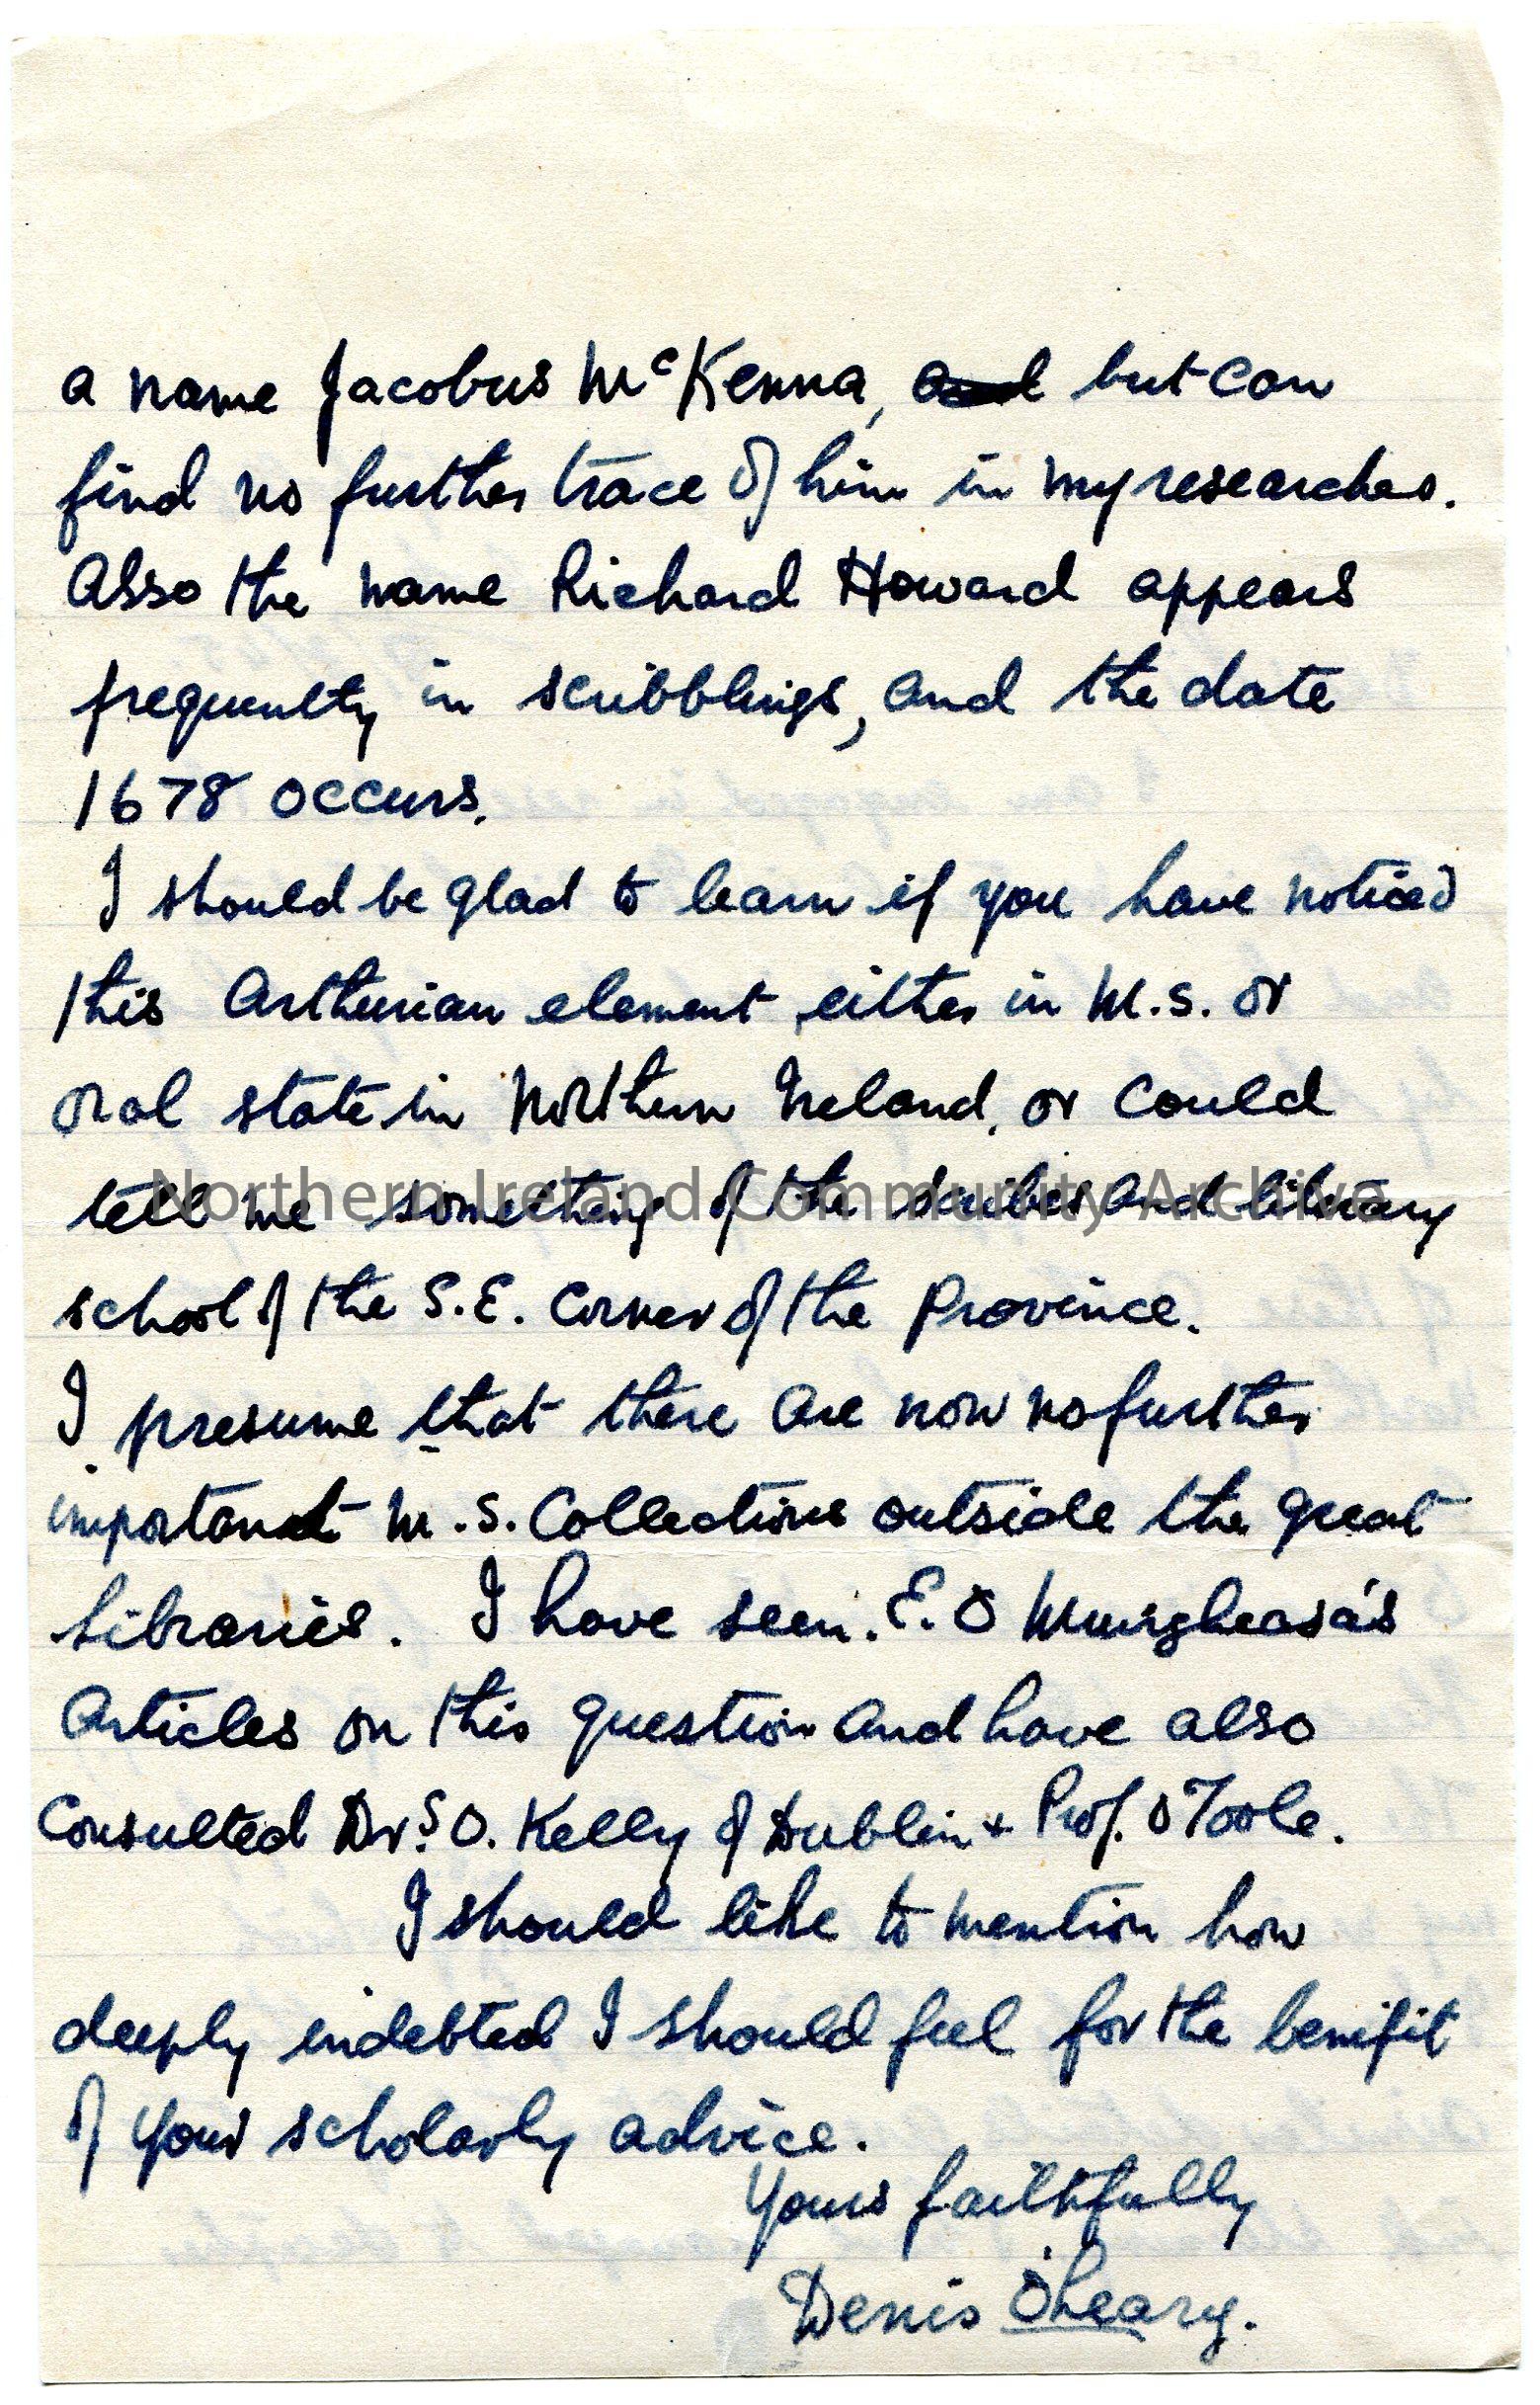 a name Jacobus McKenna, and but can
find no further trace of him in my researches.
Also the name Richard Howard appears
frequently in scribblings, and the date
1678 occurs.
I should be glad to learn if you have noticed
this Arthurian element either in M.S. or
oral state in Northern Ireland, or could
tell me something of the scribes and library
Northern Ireland Community Archive
school of the S.E. Corner of the Province.
I presume that there are now no further
important M.S. Collections outside the great
Libraries. I have seen E. Ó Muirgheasa's
Articles on this question and have also
Consulted Dr. S. O. Kelly of Dublin + Prof. O'Toole.
I should like to mention how
deeply indebted I should feel for the benifit
of your scholarly advice.
Yours faithfully
Denis O'Leary.